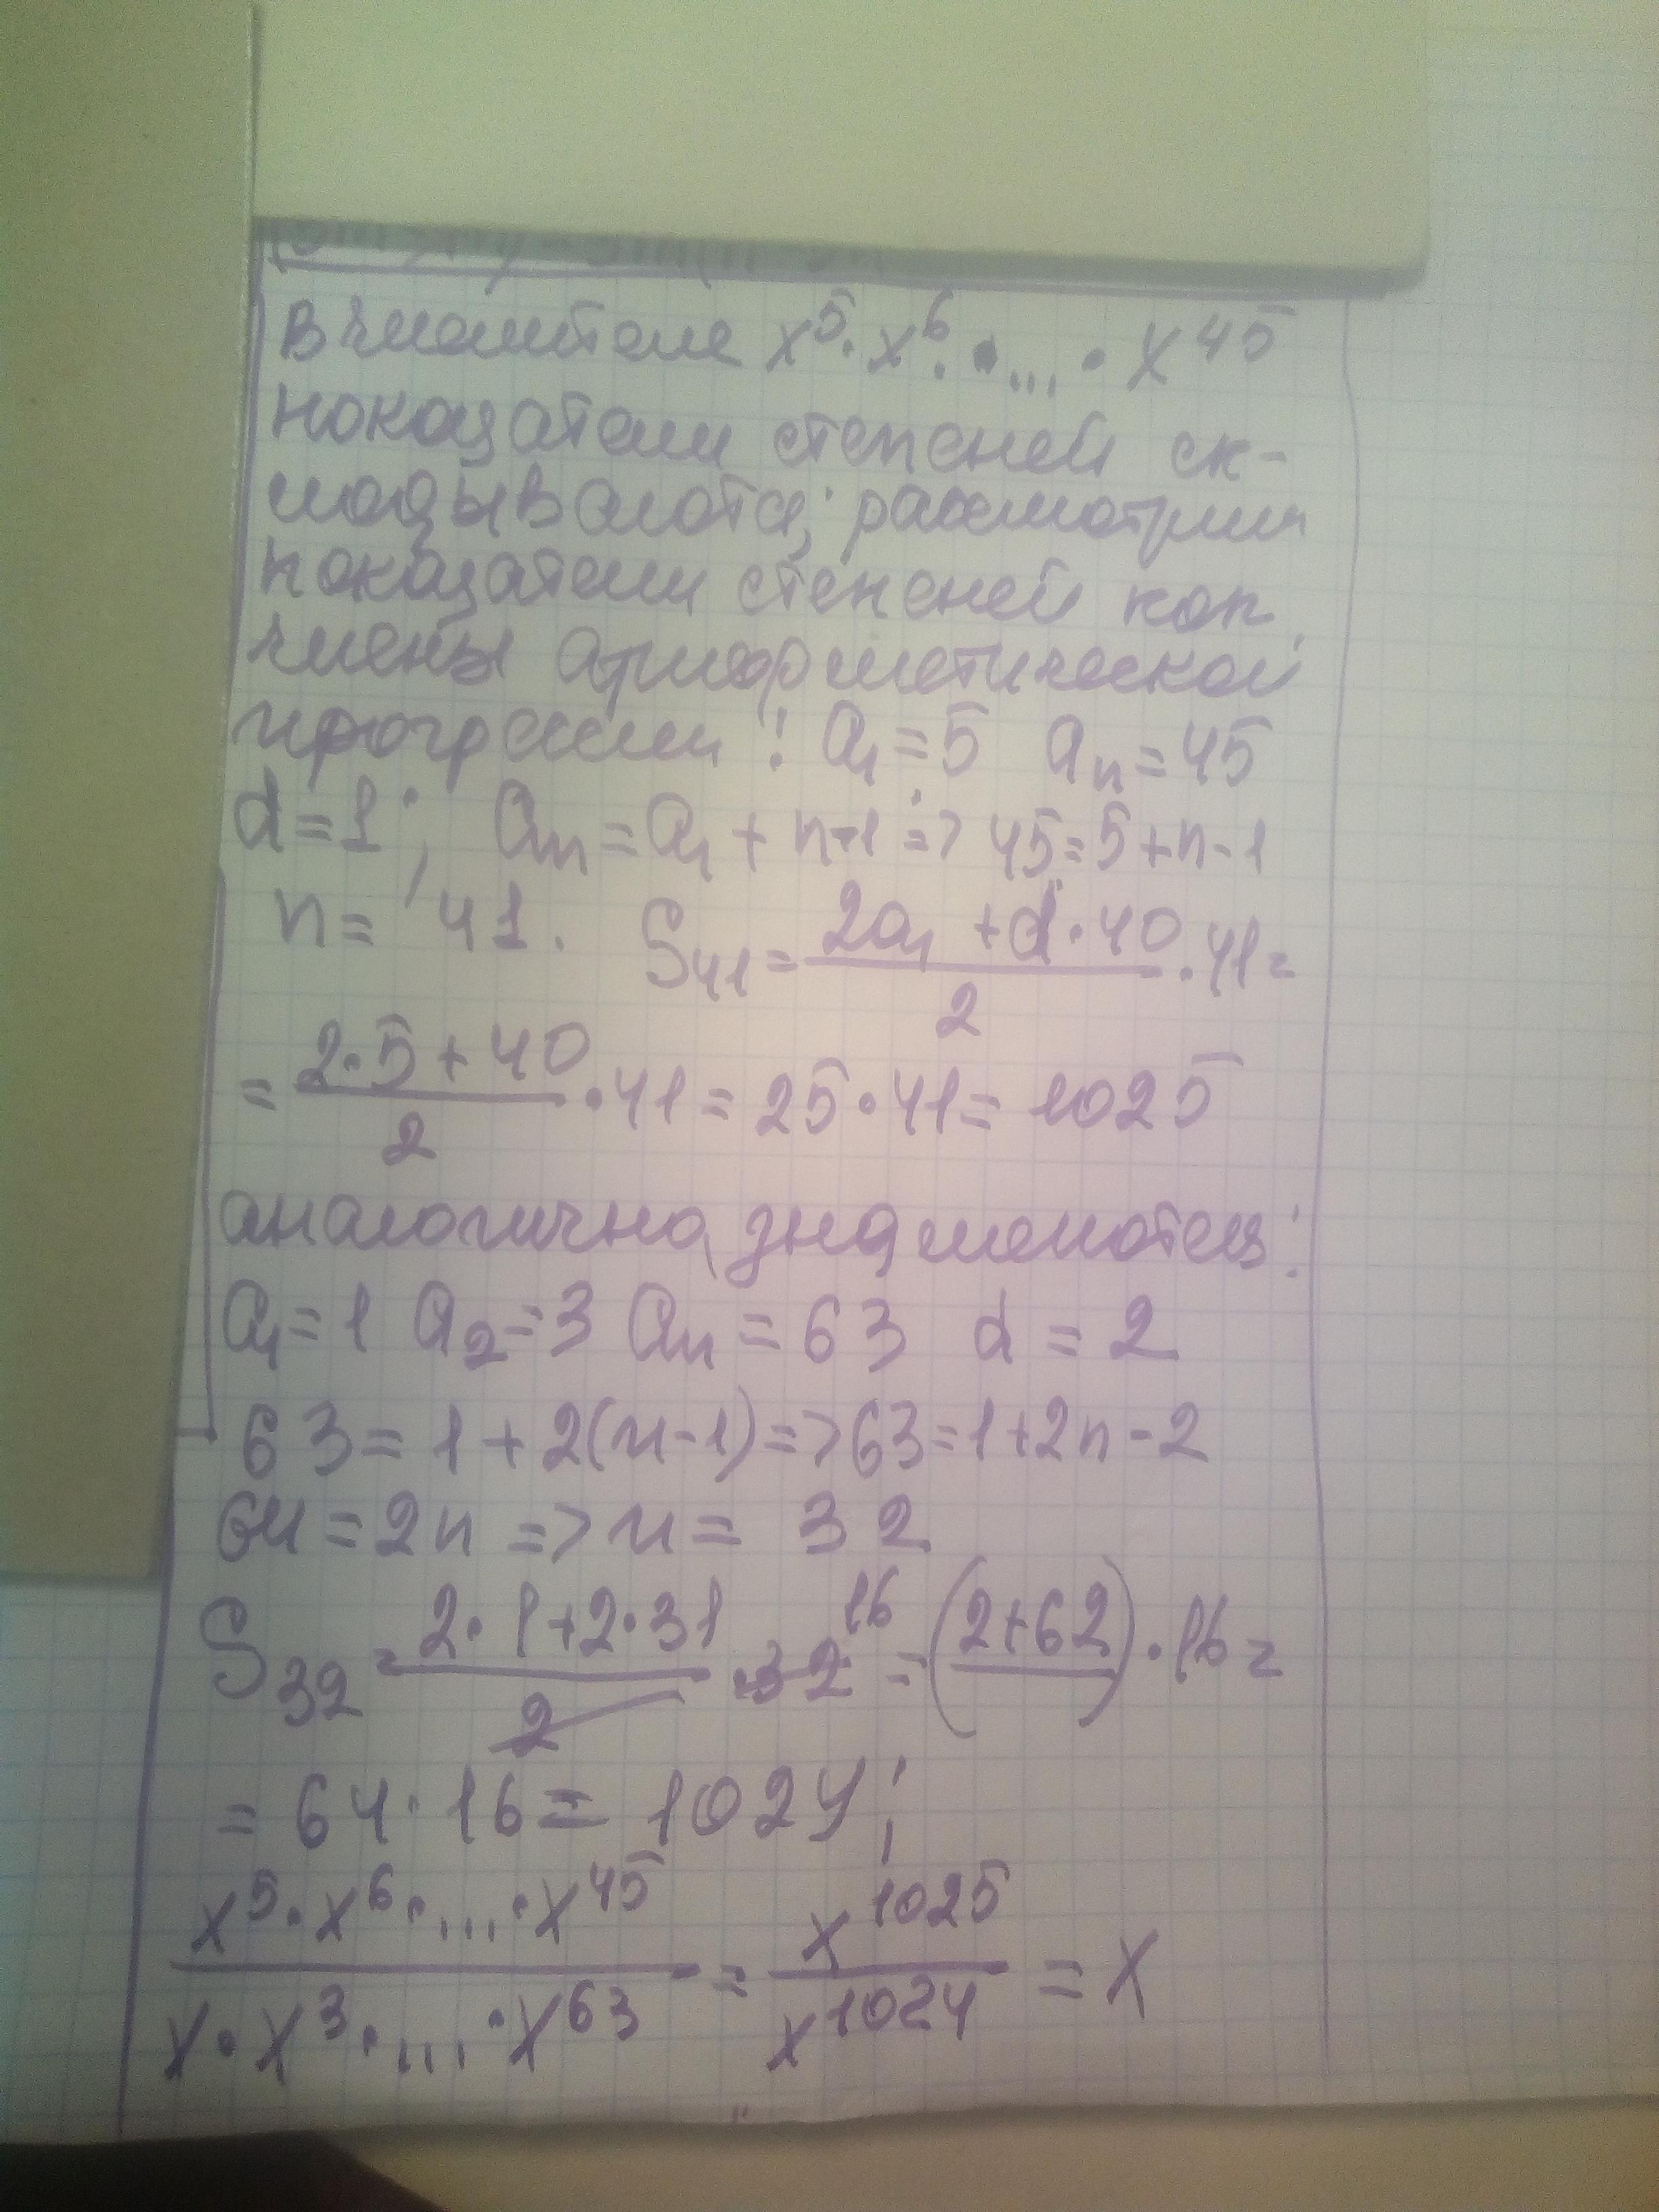 В числителе x⁵·x⁶·...·x⁴⁵
показатели степеней ск-
ладываются; рассмотрим
показатели степеней как
члены арифметической
прогрессии: a₁=5 aₙ=45
d=1; aₙ=a₁+n-1=>45=5+n-1
n= 41. S₄₁=(2a₁+d·40)/2·41=
=(2·5+40)/2·41=25·41=1025
аналогично, знаменатель:
a₁=1 a₂=3 aₙ=63 d=2
63=1+2(n-1)=>63=1+2n-2
64=2n=>n=32
S₃₂=(2·1+2·31)/2·32 16=(2+62)·16=
=64·16=1024;
(x⁵·x⁶·...·x⁴⁵)/(x·x³·...·x⁶³)=x¹⁰²⁵/x¹⁰²⁴=x